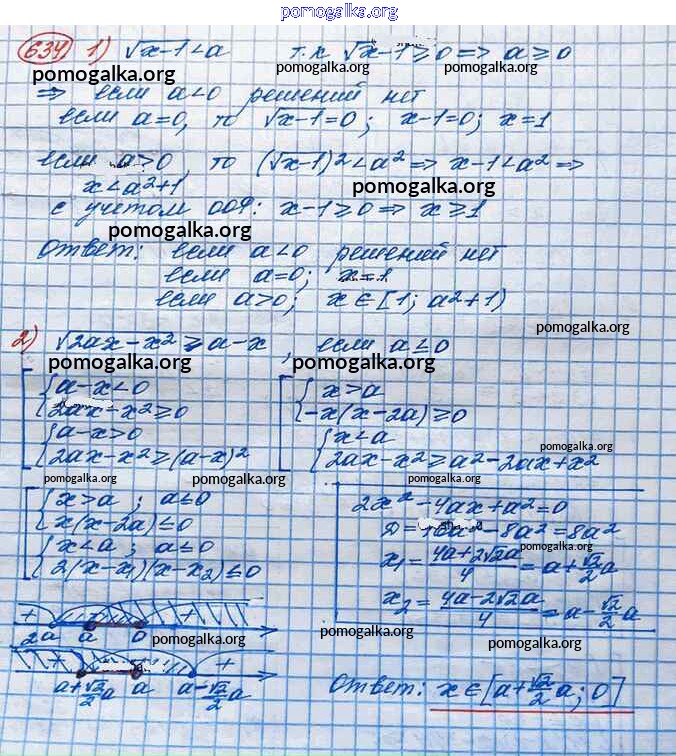 pomogalka.org
634 1) √x-1 < a т.к √x-1 ≥ 0 => a ≥ 0
pomogalka.org pomogalka.org pomogalka.org
=> если a<0 решений нет
если a=0, то √x-1=0; x-1=0; x=1
если a>0, то (√x-1)²<a² => x-1<a² =>
x<a²+1
pomogalka.org
с учетом ООФ: x-1≥0 => x≥1
pomogalka.org
Ответ: если a<0 решений нет
если a=0; x=1
если a>0; x∈[1; a²+1)
pomogalka.org
2) √2ax-x² ≥ a-x, если a≤0
pomogalka.org pomogalka.org
[{a-x<0 [{x>a
2ax-x²≥0 -x(x-2a)≥0
{a-x>0 {x<a
2ax-x²≥(a-x)² 2ax-x²≥a²-2ax+x²
pomogalka.org
pomogalka.org pomogalka.org pomogalka.org
[{x>a; a≤0 2x²-4ax+a²=0
x(x-2a)≤0 D=16a²-8a²=8a²
{x<a; a≤0 x₁=4a+2√2a/4=a+√2/2a
pomogalka.org
2(x-x₁)(x-x₂)≤0
x₂=4a-2√2a/4=a-√2/2a
+ - +
2a a 0
pomogalka.org pomogalka.org pomogalka.org
+ - +
a+√2/2a a a-√2/2a
Ответ: x∈[a+√2/2a; 0]